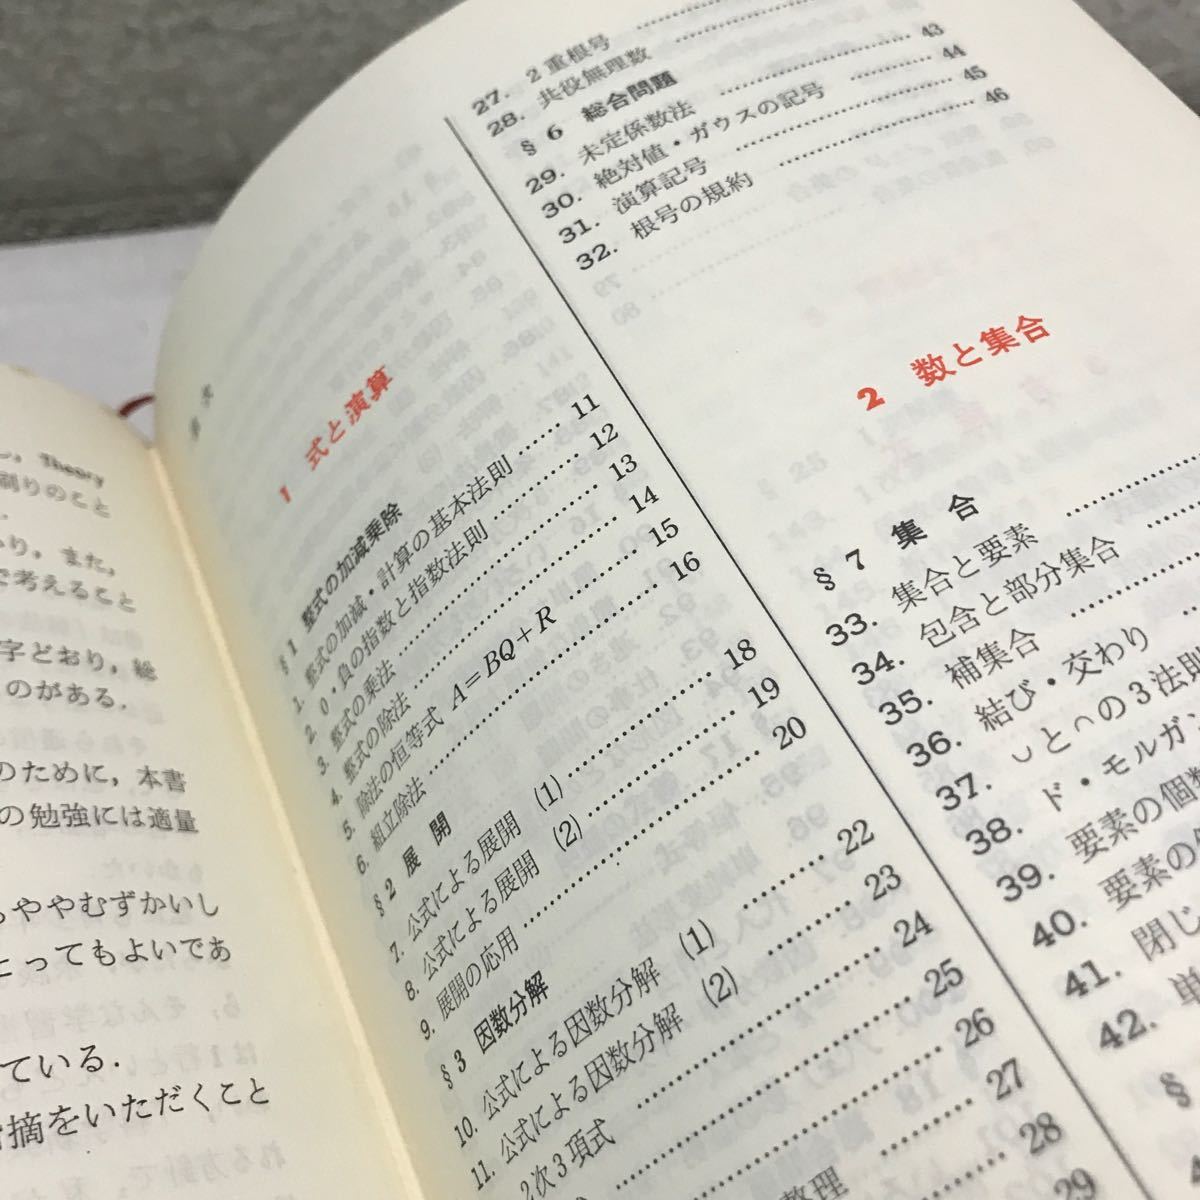 し，Theory
刷りのこと
り，また，
で考えること
字どおり，総
のがある．
のために，本書
の勉強には適量
ややむずかいし
とってもよいであ
ている．
摘をいただくこと
1 式と演算
§1 整式の加減乗除
1. 整式の加減・計算の基本法則 …… 11
2. 0・負の指数と指数法則 …… 12
3. 整式の乗法 …… 13
4. 整式の除法 …… 14
5. 除法の恒等式 A=BQ+R …… 15
6. 組立除法 …… 16
§2 展開
7. 公式による展開 (1) …… 18
8. 公式による展開 (2) …… 19
9. 展開の応用 …… 20
§3 因数分解
10. 公式による因数分解 (1) …… 22
11. 公式による因数分解 (2) …… 23
2次3項式 …… 24
25
26
27
整理 …… 28
29
27. 2重根号
28. 共役無理数
§6 総合問題
29. 未定係数法 …… 43
30. 絶対値・ガウスの記号 …… 44
31. 演算記号 …… 45
32. 根号の規約 …… 46
2 数と集合
§7 集合
33. 集合と要素
34. 包含と部分集合
35. 補集合
36. 結び・交わり
37. ∪と∩の3法則
38. ド・モルガン
39. 要素の個数
40. 要素の
41. 閉じ
42. 単
§